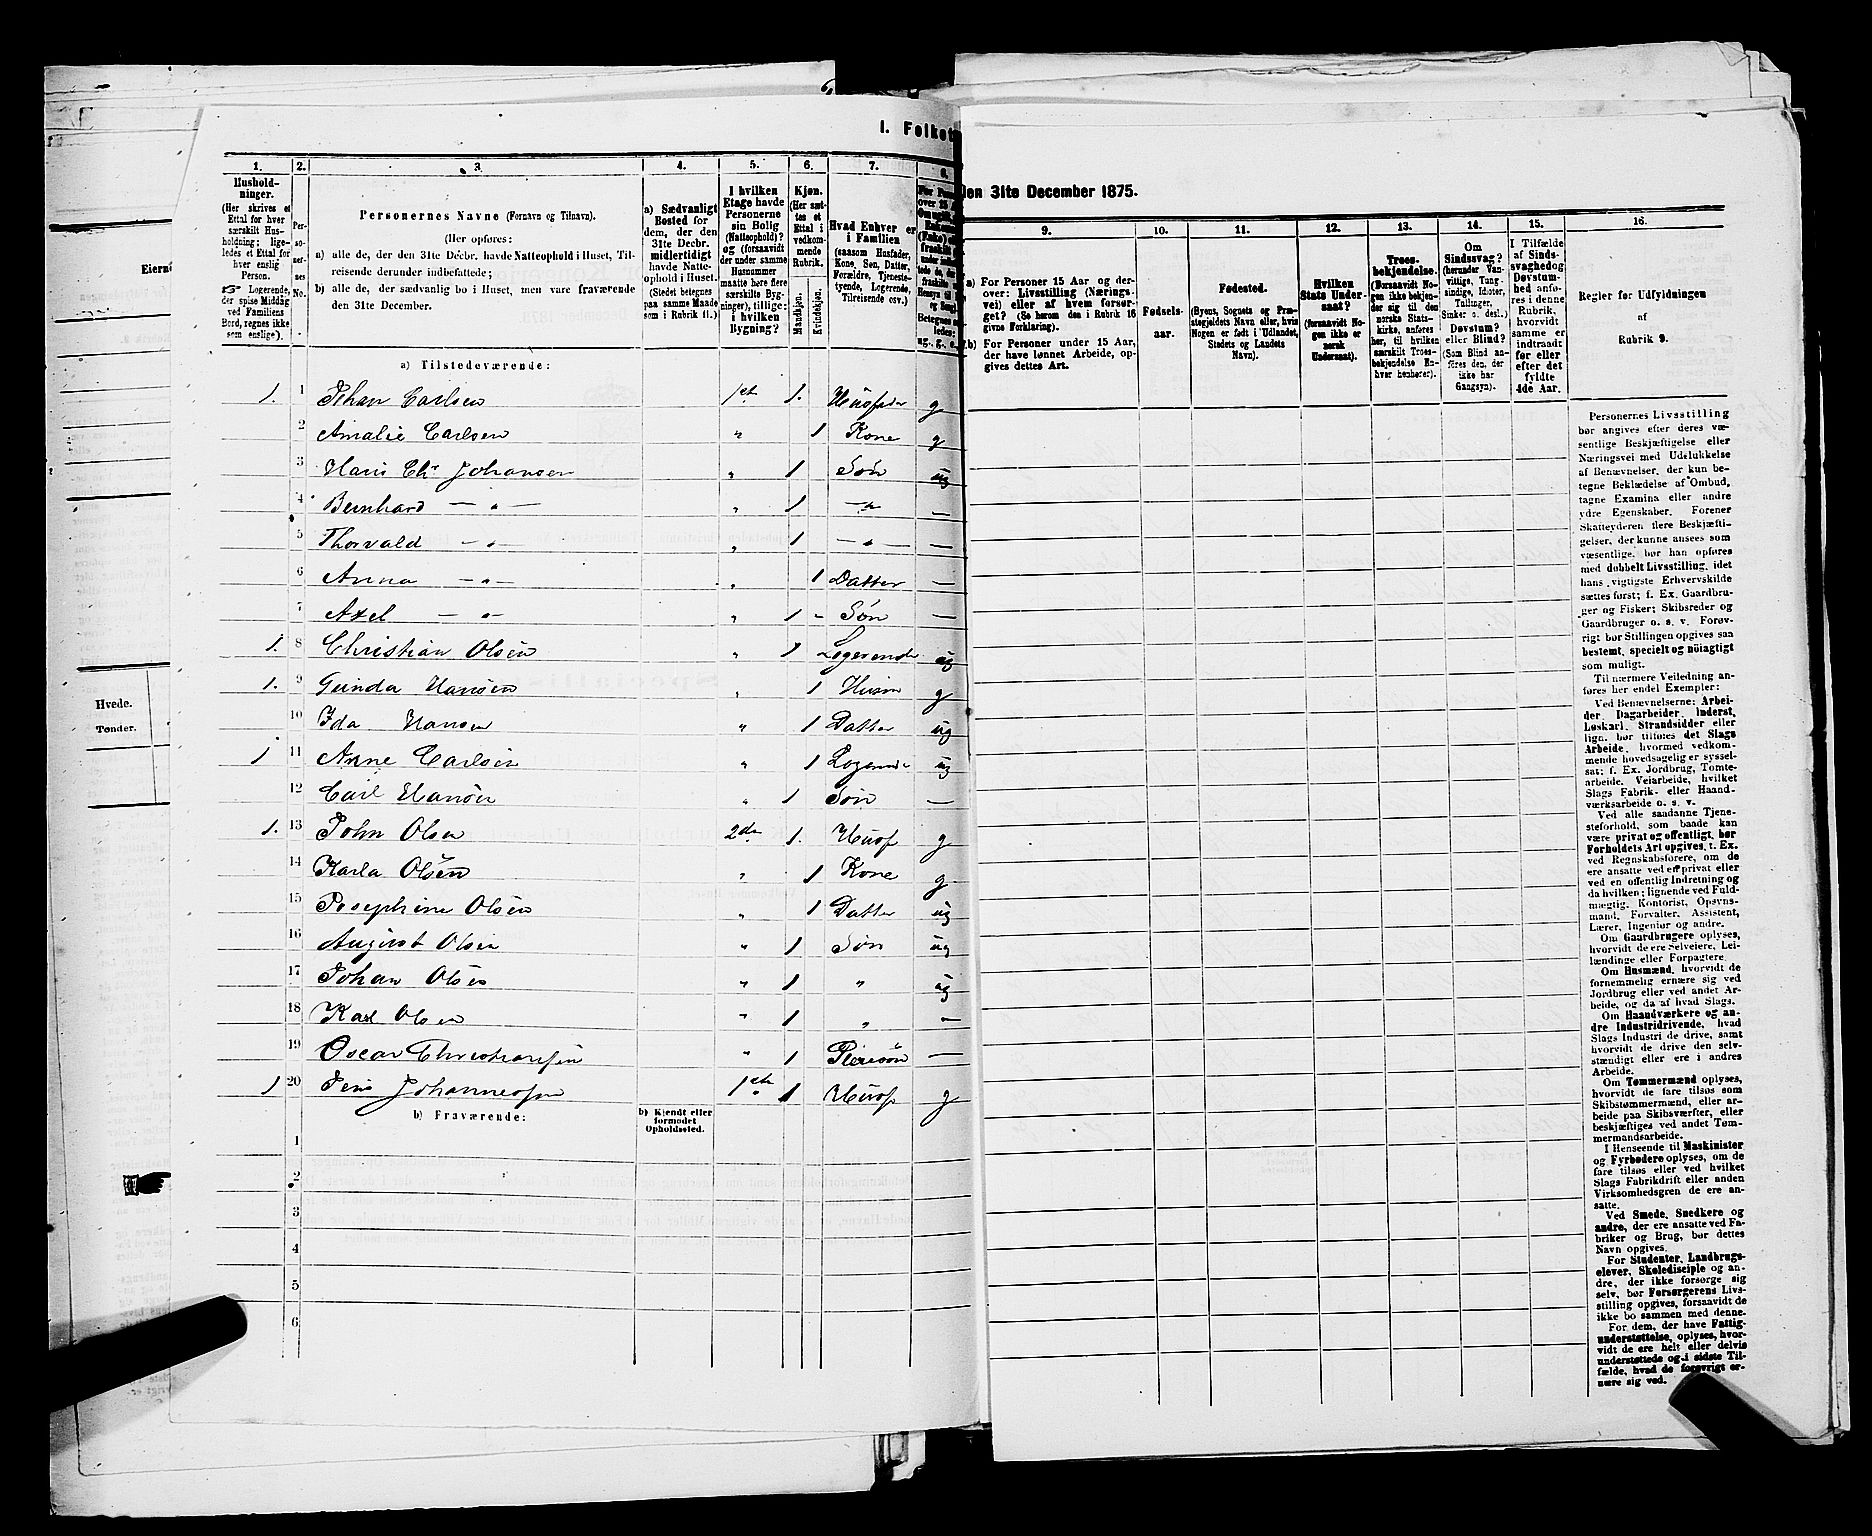 I. Folket
den 31te December 1875.
1. 2. 3. 4. 5. 6. 7. 8.
Husholdninger.
(Her skrives et Ettal for hver særskilt Husholdning; ligeledes et Ettal for hver enslig Person.
Logerende, der spise Middag ved Familiens Bord, regnes ikke som enslige).
Personernes No.
Personernes Navne (Fornavn og Tilnavn).
(Her opføres:
a) alle de, der den 31te Decbr. havde Natteophold i Huset, Tilreisende derunder indbefattede;
b) alle de, der sædvanlig bo i Huset, men vare fraværende den 31te December.
a) Sædvanligt Bosted for dem, der den 31te Decbr. midlertidigt havde Natteophold i Huset.
(Stedet betegnes paa samme Maade som i Rubrik 11.)
I hvilken Etage havde Personerne sin Bolig (Natteophold)? og (forsaavidt der under samme Husnummer maatte høre flere særskilte Bygninger), tillige: i hvilken Bygning?
Kjøn. (Her sættes et Ettal i vedkommende Rubrik.
Mandkjøn. Kvindekjøn.
Hvad Enhver er i Familien
(saasom Husfader, Kone, Søn, Datter, Forældre, Tjenestetyende, Logerende, Tilreisende osv.)
a) Tilstedeværende:
1. 1 Johan Carlsen 1st 1. Husfader g
2 Amalie Carlsen " 1 Kone g
3 Hans Chr Johansen " 1 Søn ug
4 Bernhard — " — " 1 — " —
5 Thorvald — " — " 1 — " — —
6 Anna — " — " 1 Datter —
7 Axel — " — " 1 - Søn —
1. 8 Christian Olsen " 1 Logerende ug
1. 9 Gunda Hansen " 1 g
10 Ida Hansen " 1 Datter ug
1 11 Anne Carlsen " 1 Logerende ug
12 Carl Hansen " 1 Søn —
1. 13 John Olsen 2den 1. Husf g
14 Karla Olsen " 1 Kone g
15 Josephine Olsen " 1 Datter ug
16 August Olsen " 1 Søn ug
17 Johan Olsen " 1 " ug
18 Karl Olsen " 1 " —
19 Oscar Christiansen " 1 Pleiesøn —
1 20 Jens Johannessen 1ste 1 Husf g
b) Fraværende: b) Kjendt eller formodet Opholdssted.
1
2
3
4
5
6
9. 10. 11. 12. 13. 14. 15. 16.
a) For Personer 15 Aar og derover: Livsstilling (Næringsvei) eller af hvem forsørget? (Se herom den i Rubrik 16 givne Forklaring).
b) For Personer under 15 Aar, der have lønnet Arbeide, opgives dettes Art.
Fødselsaar.
Fødested.
(Byens, Sognets og Præstegjeldets Navn eller, hvis Nogen er født i Udlandet, Stedets og Landets Navn).
Hvilken Stats Undersaat?
(forsaavidt Nogen ikke er norsk Undersaat).
Troesbekjendelse.
(Forsaavidt Nogen ikke bekjender sig til den norske Statskirke, anføres her, til hvilken særskilt Troesbekjendelse Enhver henhører).
Om Sindssvag? (herunder Vanvittige, Tungsindige, Idioter, Tullinger, Sinker o. desl.) Døvstum? eller Blind?
(Som Blind anføres den, der ikke har Gangsyn).
I Tilfælde af Sindssvaghed og Døvstumhed anføres i denne Rubrik, hvorvidt samme er indtraadt før eller efter det fyldte 4de Aar.
Regler før Udfyldningen
af
Rubrik 9.
Personernes Livsstilling
bør angives efter deres væ-
sentlige Beskjæftigelse eller
Næringsvei med Udelukkelse
af Benævnelser, der kun be-
tegne Beklædelse af Ombud,
tagne Examina eller andre
ydre Egenskaber. Forener
Skatteyderen flere Beskjæfti-
gelser, der kunne ansees som
væsentlige, bør han opføres
med dobbelt Livsstilling, idet
hans vigtigste Erhvervskilde
sættes først; f. Ex. Gaardbru-
ger og Fisker; Skibsreder og
Gaardbruger o. s. v. Forøv-
rigt bør Stillingen opgives saa
bestemt, specielt og nöiagtigt
som muligt.
Til nærmere Veiledning an-
føres her endel Exempler:
Ved Benævnelserne: Arbei-
der, Dagarbeider, Inderst,
Løskarl, Strandsidder eller
lign. bør tilføres det Slags
Arbeide, hvormed vedkom-
mende hovedsagelig er syssel-
sat; f. Ex. Jordbrug, Tomte-
arbeide, Veiarbeide, hvilket
Slags Fabrik- eller Haand-
værksarbeide o. s. v.
Ved alle saadanne Tjene-
steforhold, som baade kan
være privat og offentligt, bør
Forholdets Art opgives, t. Ex.
ved Regnskabsførere, om de
ere ansatte ved en privat eller
ved en offentlig Indretning og
da hvilken; lignende ved Fuld-
mægtig, Kontorist, Opsyns-
mand, Forvalter, Assistent,
Lærer, Ingeniør og andre.
Om Gaardbrugere oplyses,
hvorvidt de ere Selveiere, Lei-
lændinge eller Forpagtere.
Om Husmænd, hvorvidt de
fornemmelig ernære sig ved
Jordbrug eller ved andet Ar-
beide, og da af hvad Slags.
Om Haandværkere og an-
dre Industridrivende, hvad
Slags Industri de drive, samt
hvorvidt de drive den selv-
stændigt eller ere i andres
Arbeide.
Om Tømmermænd oplyses,
hvorvidt de fare tilsøs som
Skibstømmermænd, eller ar-
beide paa Skibsværfter, eller
beskjæftiges ved andet Tøm-
mermandsarbeide.
I Henseende til Maskinister
og Fyrbødere oplyses, om de
fare tilsøs eller ved hvilket
Slags Fabrikdrift eller anden
Virksomhedsgren de ere an-
satte.
Ved Smede, Snedkere og
andre, der ere ansatte ved Fa-
briker og Brug, bør dettes
Navn opgives.
For Studenter, Landbrugs-
elever, Skoledisciple og an-
dre, der ikke forsørge sig
selv, bør Forsørgerens Livs-
stilling opgives, forsaavidt de
ikke bo sammen med denne.
For dem, der have Fattig-
understøttelse, oplyses, hvor-
vidt de ere helt eller delvis
understøttede og i sidste Til-
fælde, hvad de forøvrigt er-
nære sig ved.
Hvede.
Tønder.